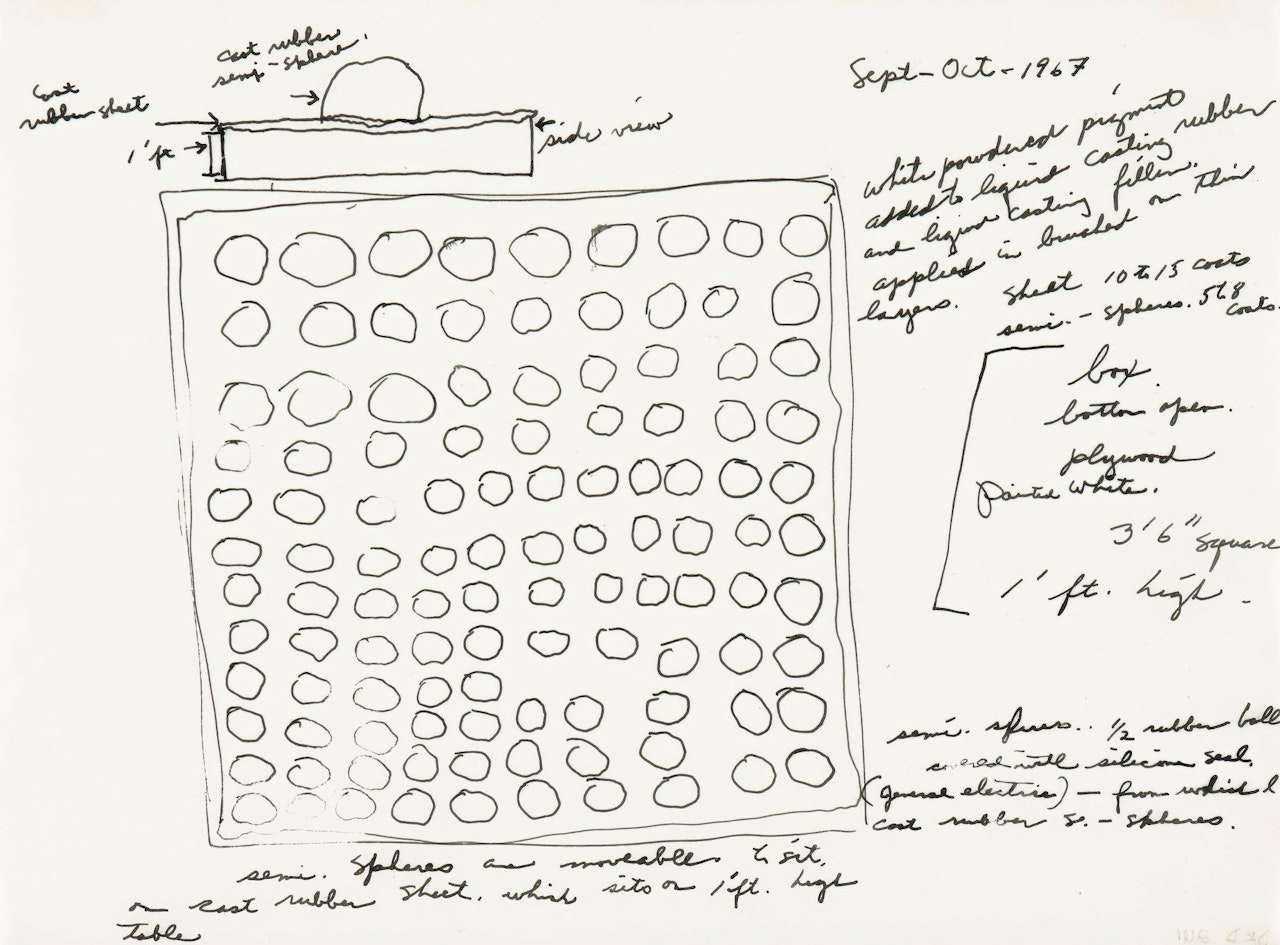 cast rubber
semi-sphere.
cast
rubber sheet
1' ft
side view
Sept-Oct-1967
white powdered pigment
added to liquid casting rubber
and liquid casting filler.
applied in brushed on thin
layers. Sheet 10 to 15 coats
semi.-spheres. 5 to 8
coats.
box.
bottom open.
plywood
painted white.
3'6" square
1' ft. high
semi. spheres.. 1/2 rubber ball
covered with silicone seal.
(general electric) — from which I
cast rubber s.-spheres.
semi. spheres are moveable. to sit.
on cast rubber sheet. which sits on 1'ft. high
table